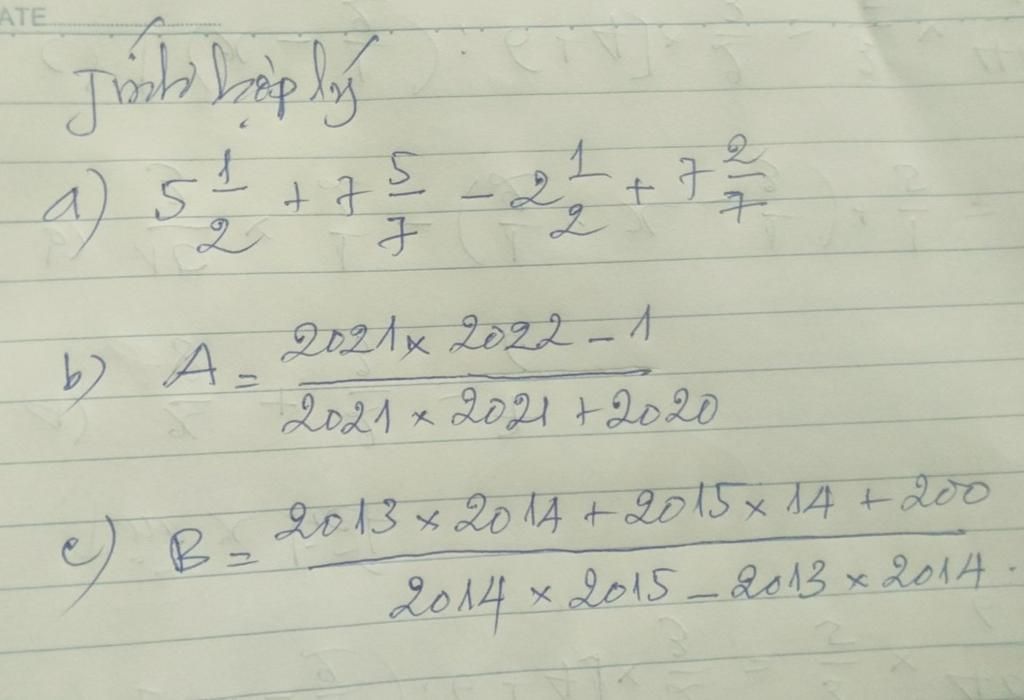 ATE
Tính hợp lý
a) 5 1/2 + 7 5/7 - 2 1/2 + 7 2/7
b) A = (2021 x 2022 - 1)/(2021 x 2021 + 2020)
c) B = (2013 x 2014 + 2015 x 14 + 200)/(2014 x 2015 - 2013 x 2014)